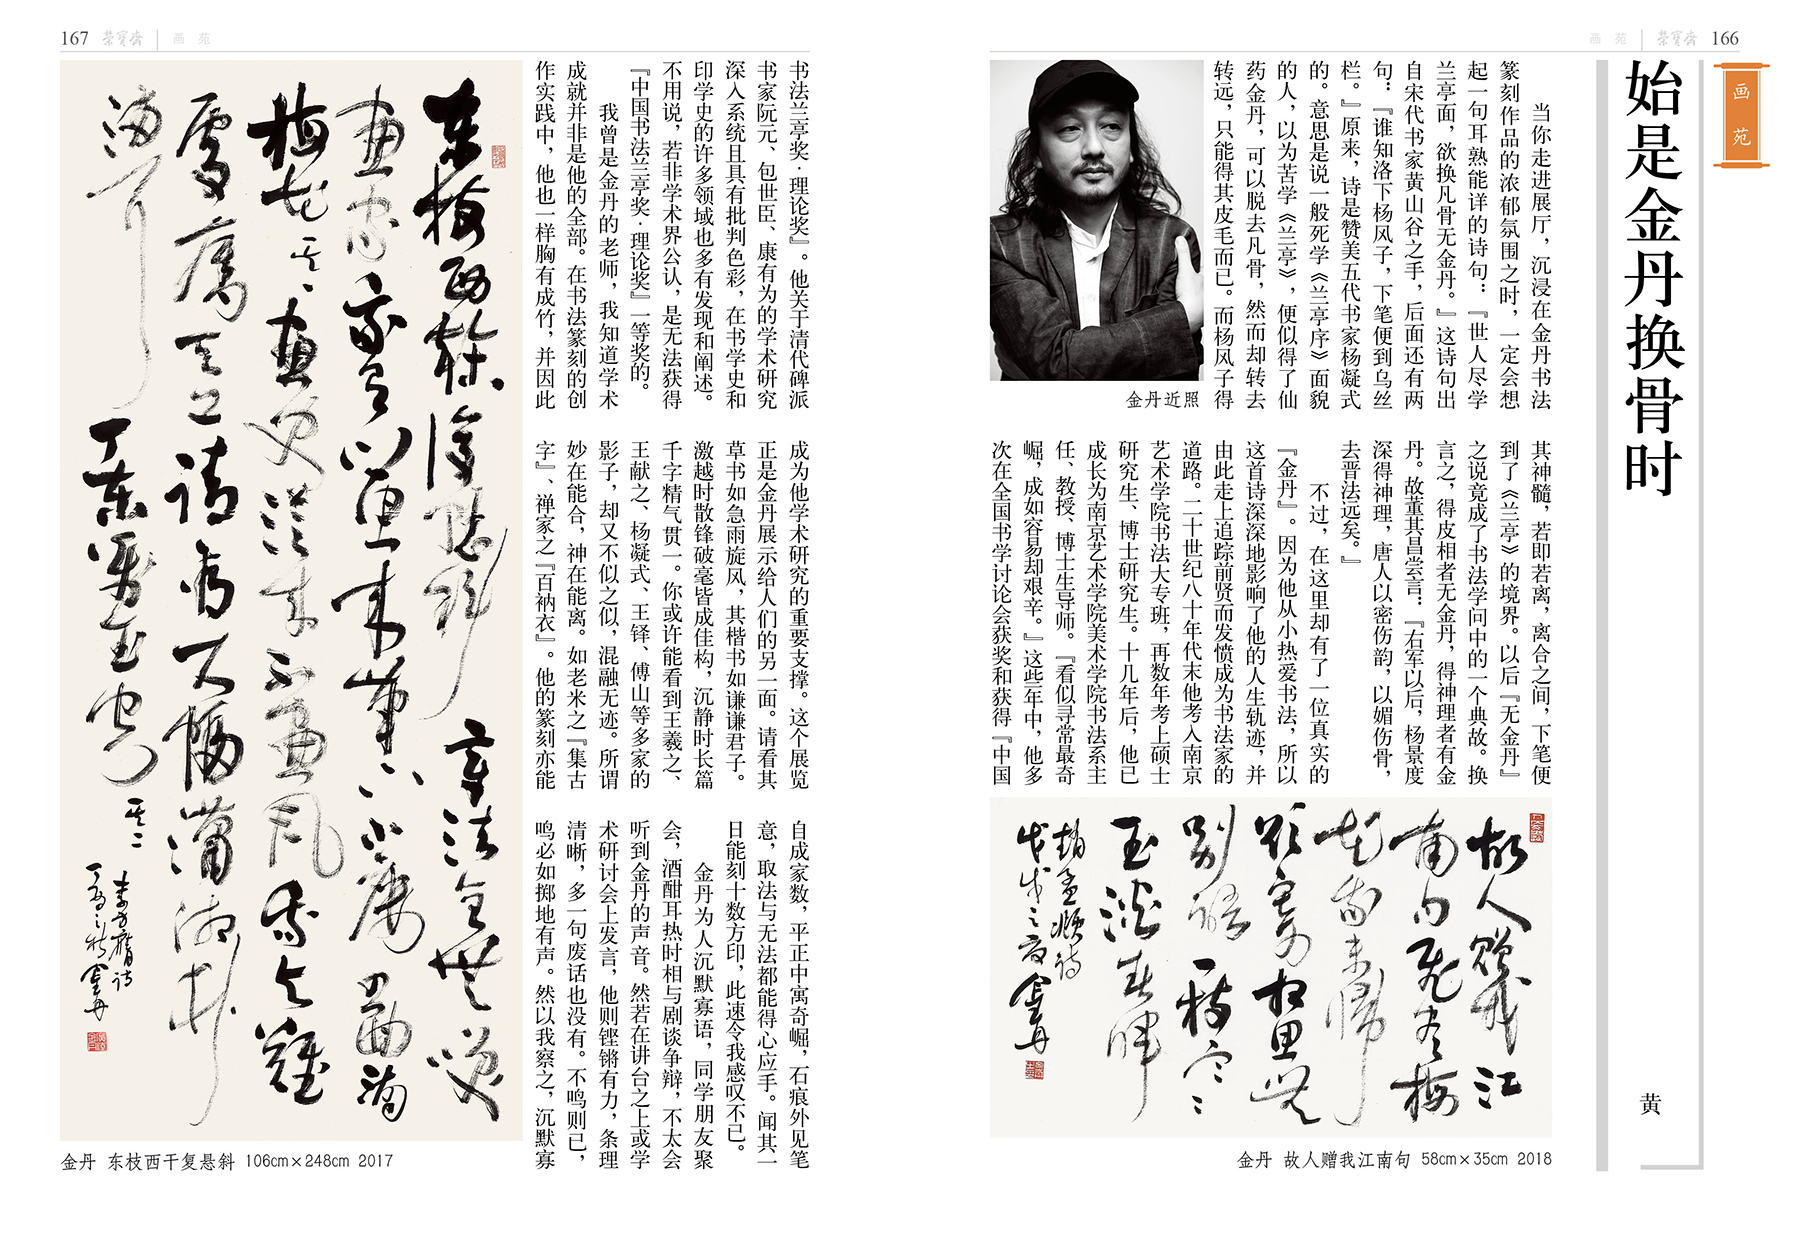 166
荣宝斋
画苑
画苑
始是金丹换骨时
黄
当你走进展厅，沉浸在金丹书法
篆刻作品的浓郁氛围之时，一定会想
起一句耳熟能详的诗句：『世人尽学
兰亭面，欲换凡骨无金丹。』这诗句出
自宋代书家黄山谷之手，后面还有两
句：『谁知洛下杨风子，下笔便到乌丝
栏。』原来，诗是赞美五代书家杨凝式
的。意思是说一般死学《兰亭序》面貌
的人，以为苦学《兰亭》，便似得了仙
药金丹，可以脱去凡骨，然而却转去
转远，只能得其皮毛而已。而杨风子得
金丹近照
其神髓，若即若离，离合之间，下笔便
到了《兰亭》的境界。以后『无金丹』
之说竟成了书法学问中的一个典故。换
言之，得皮相者无金丹，得神理者有金
丹。故董其昌尝言：『右军以后，杨景度
深得神理，唐人以密伤韵，以媚伤骨，
去晋法远矣。』
不过，在这里却有了一位真实的
『金丹』。因为他从小热爱书法，所以
这首诗深深地影响了他的人生轨迹，并
由此走上追踪前贤而发愤成为书法家的
道路。二十世纪八十年代末他考入南京
艺术学院书法大专班，再数年考上硕士
研究生、博士研究生。十几年后，他已
成长为南京艺术学院美术学院书法系主
任、教授、博士生导师。『看似寻常最奇
崛，成如容易却艰辛。』这些年中，他多
次在全国书学讨论会获奖和获得『中国
故人赠我江
南句飞尽梅
花我未归
欲寄相思无
别语一枝寒
玉淡春晖
赵孟頫诗
戊戌之夏金丹
金丹 故人赠我江南句 58cm×35cm 2018
167
荣宝斋
画苑
书法兰亭奖·理论奖』。他关于清代碑派
书家阮元、包世臣、康有为的学术研究
深入系统且具有批判色彩，在书学史和
印学史的许多领域也多有发现和阐述。
不用说，若非学术界公认，是无法获得
『中国书法兰亭奖·理论奖』一等奖的。
我曾是金丹的老师，我知道学术
成就并非是他的全部。在书法篆刻的创
作实践中，他也一样胸有成竹，并因此
成为他学术研究的重要支撑。这个展览
正是金丹展示给人们的另一面。请看其
草书如急雨旋风，其楷书如谦谦君子。
激越时散锋破毫皆成佳构，沉静时长篇
千字精气贯一。你或许能看到王羲之、
王献之、杨凝式、王铎、傅山等多家的
影子，却又不似之似，混融无迹。所谓
妙在能合，神在能离。如老米之『集古
字』、禅家之『百衲衣』。他的篆刻亦能
自成家数，平正中寓奇崛，石痕外见笔
意，取法与无法都能得心应手。闻其一
日能刻十数方印，此速令我感叹不已。
金丹为人沉默寡语，同学朋友聚
会，酒酣耳热时相与剧谈争辩，不太会
听到金丹的声音。然若在讲台之上或学
术研讨会上发言，他则铿锵有力，条理
清晰，多一句废话也没有。不鸣则已，
鸣必如掷地有声。然以我察之，沉默寡
金丹 东枝西干复悬斜 106cm×248cm 2017